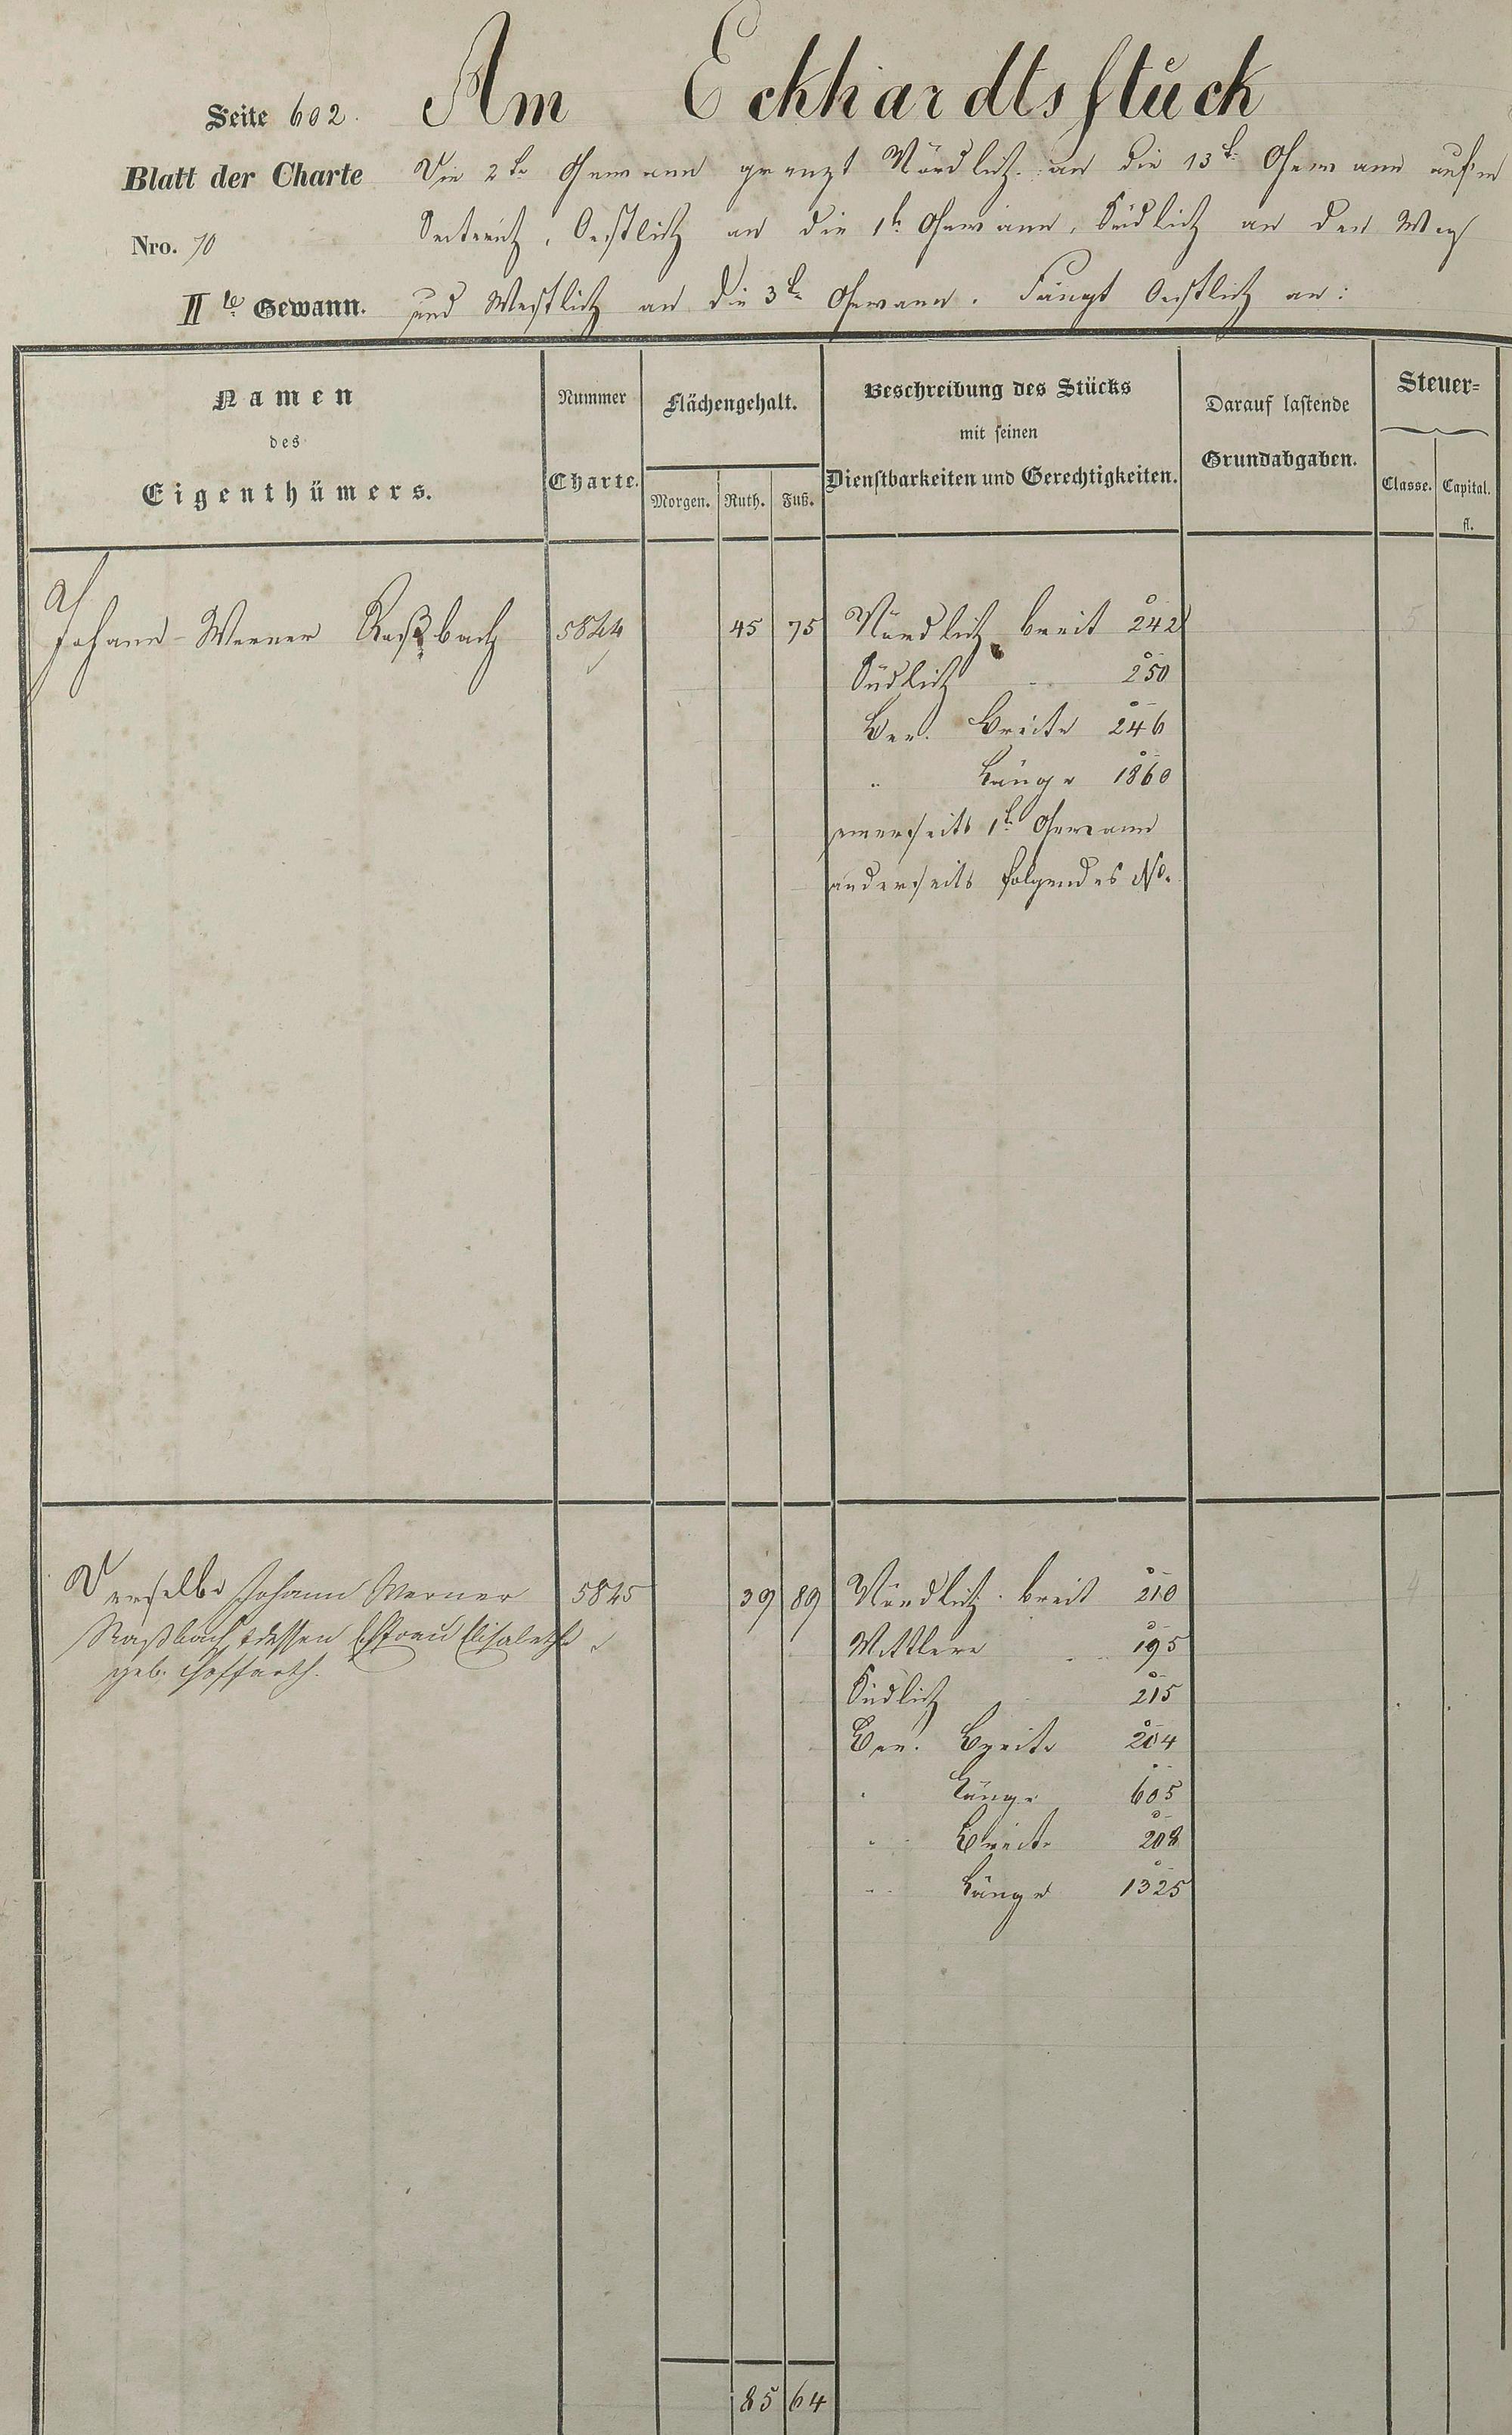 Seite 602.
Am Eckhardtsstück
Blatt der Charte
Nro. 70
IIte Gewann.
Die 2te Gewann grenzt Nördlich an die 13te Gewann auf'm
Oestlich an die 1te Gewann, Südlich an den Weg
und Westlich an die 3te Gewann. Fängt Oestlich an:
Namen
des
Eigenthümers.
Nummer
Charte.
Flächengehalt.
Morgen. Ruth. Fuß.
Beschreibung des Stücks
mit seinen
Dienstbarkeiten und Gerechtigkeiten.
Darauf lastende
Grundabgaben.
Steuer=
Classe. Capital.
fl.
Johann Werner Raßbach 5844 45 75 Nördlich breit 242 5
Südlich 250
Ber. Breite 246
" Länge 1860
einerseits 1te Gewann
anderseits folgendes No.
Derselbe Johann Werner 5845 39 89 Nördlich breit 210 4
Raßbach dessen Ehefrau Elisabetha
geb. Hoffarth.
Mittlere 195
Südlich 215
Ber. Breite 204
" Länge 605
" Breite 208
" Länge 1325
85 64